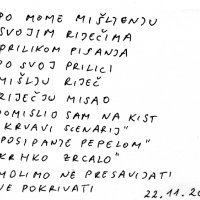 PO MOME MIŠLJENJU
SVOJIM RIJEČIMA
PRILIKOM PISANJA
PO SVOJ PRILICI
MIŠLJU RIJEČ
RIJEČJU MISAO
DOMISLIO SAM NA KIST
"KRVAVI SCENARIJ"
"POSIPANJE PEPELOM"
"KRHKO ZRCALO"
MOLIMO NE PRESAVIJATI
NE POKRIVATI
22.11.20